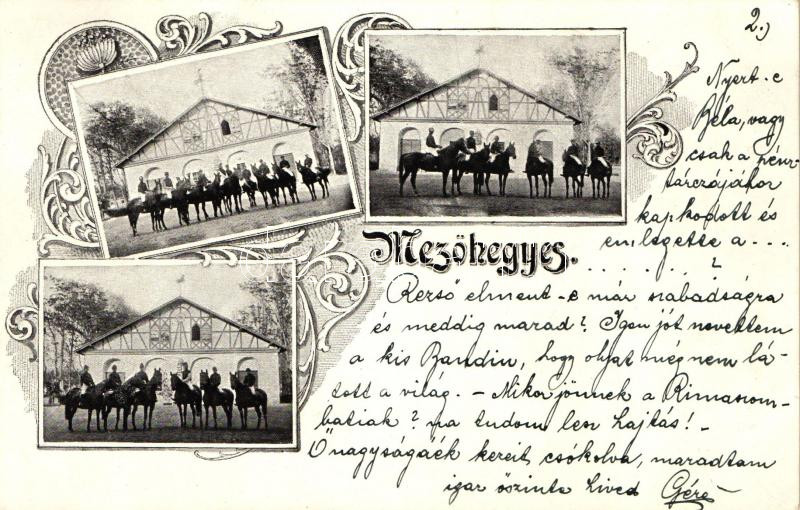 2.)
Nyert-e
Béla, vagy
csak a pénz-
tárczájához
kapkodott és
emlegette a ...
Mezőhegyes.
. . . . . . ?
Rezső elment-e már szabadságra
és meddig marad? Igen jót nevettem
a kis Bandin, hogy olyat még nem lá-
tott a világ. - Mikor jönnek a Rimaszom-
batiak? na tudom lesz hajtás! -
Ő nagyságáék kezeit csókolva, maradtam
igaz őszinte hived Géza